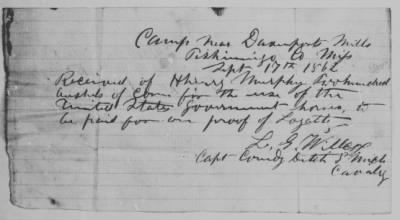 Camp Near Davenport Mills
Tishimingo Co Miss
Sept 17th 1862
Received of Henry Murphy Two hundred
bushels of Corn for the use of the
United States Government horses, to
be paid for on proof of Loyalty
L. G. Wilcox
Capt Comdg Detch 3" Mich
Cavalry